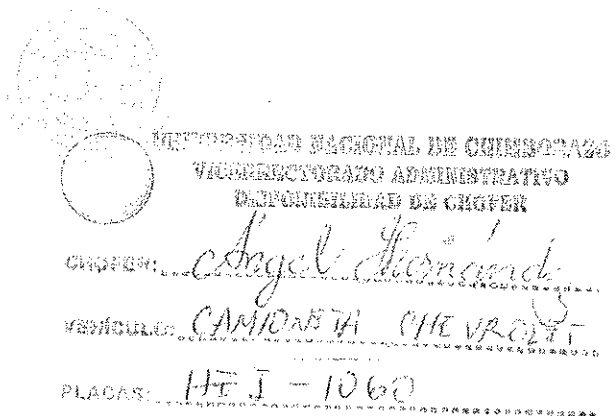 UNIVERSIDAD NACIONAL DE CHIMBORAZO
VICERRECTORADO ADMINISTRATIVO
DISPONIBILIDAD DE CHOFER
CHOFER: Angel Hernández
VEHÍCULO: CAMIONETA CHEVROLET
PLACAS: HEI - 1060